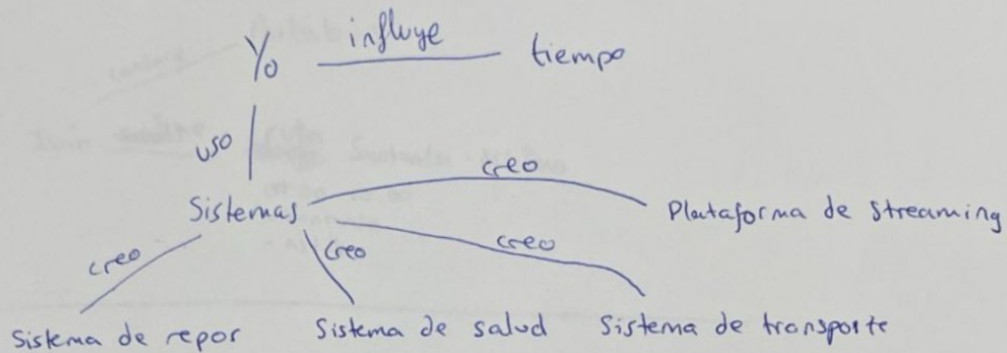 Yo influye tiempo
uso
creo
Sistemas Plataforma de Streaming
creo creo creo
Sistema de repor Sistema de salud Sistema de transporte